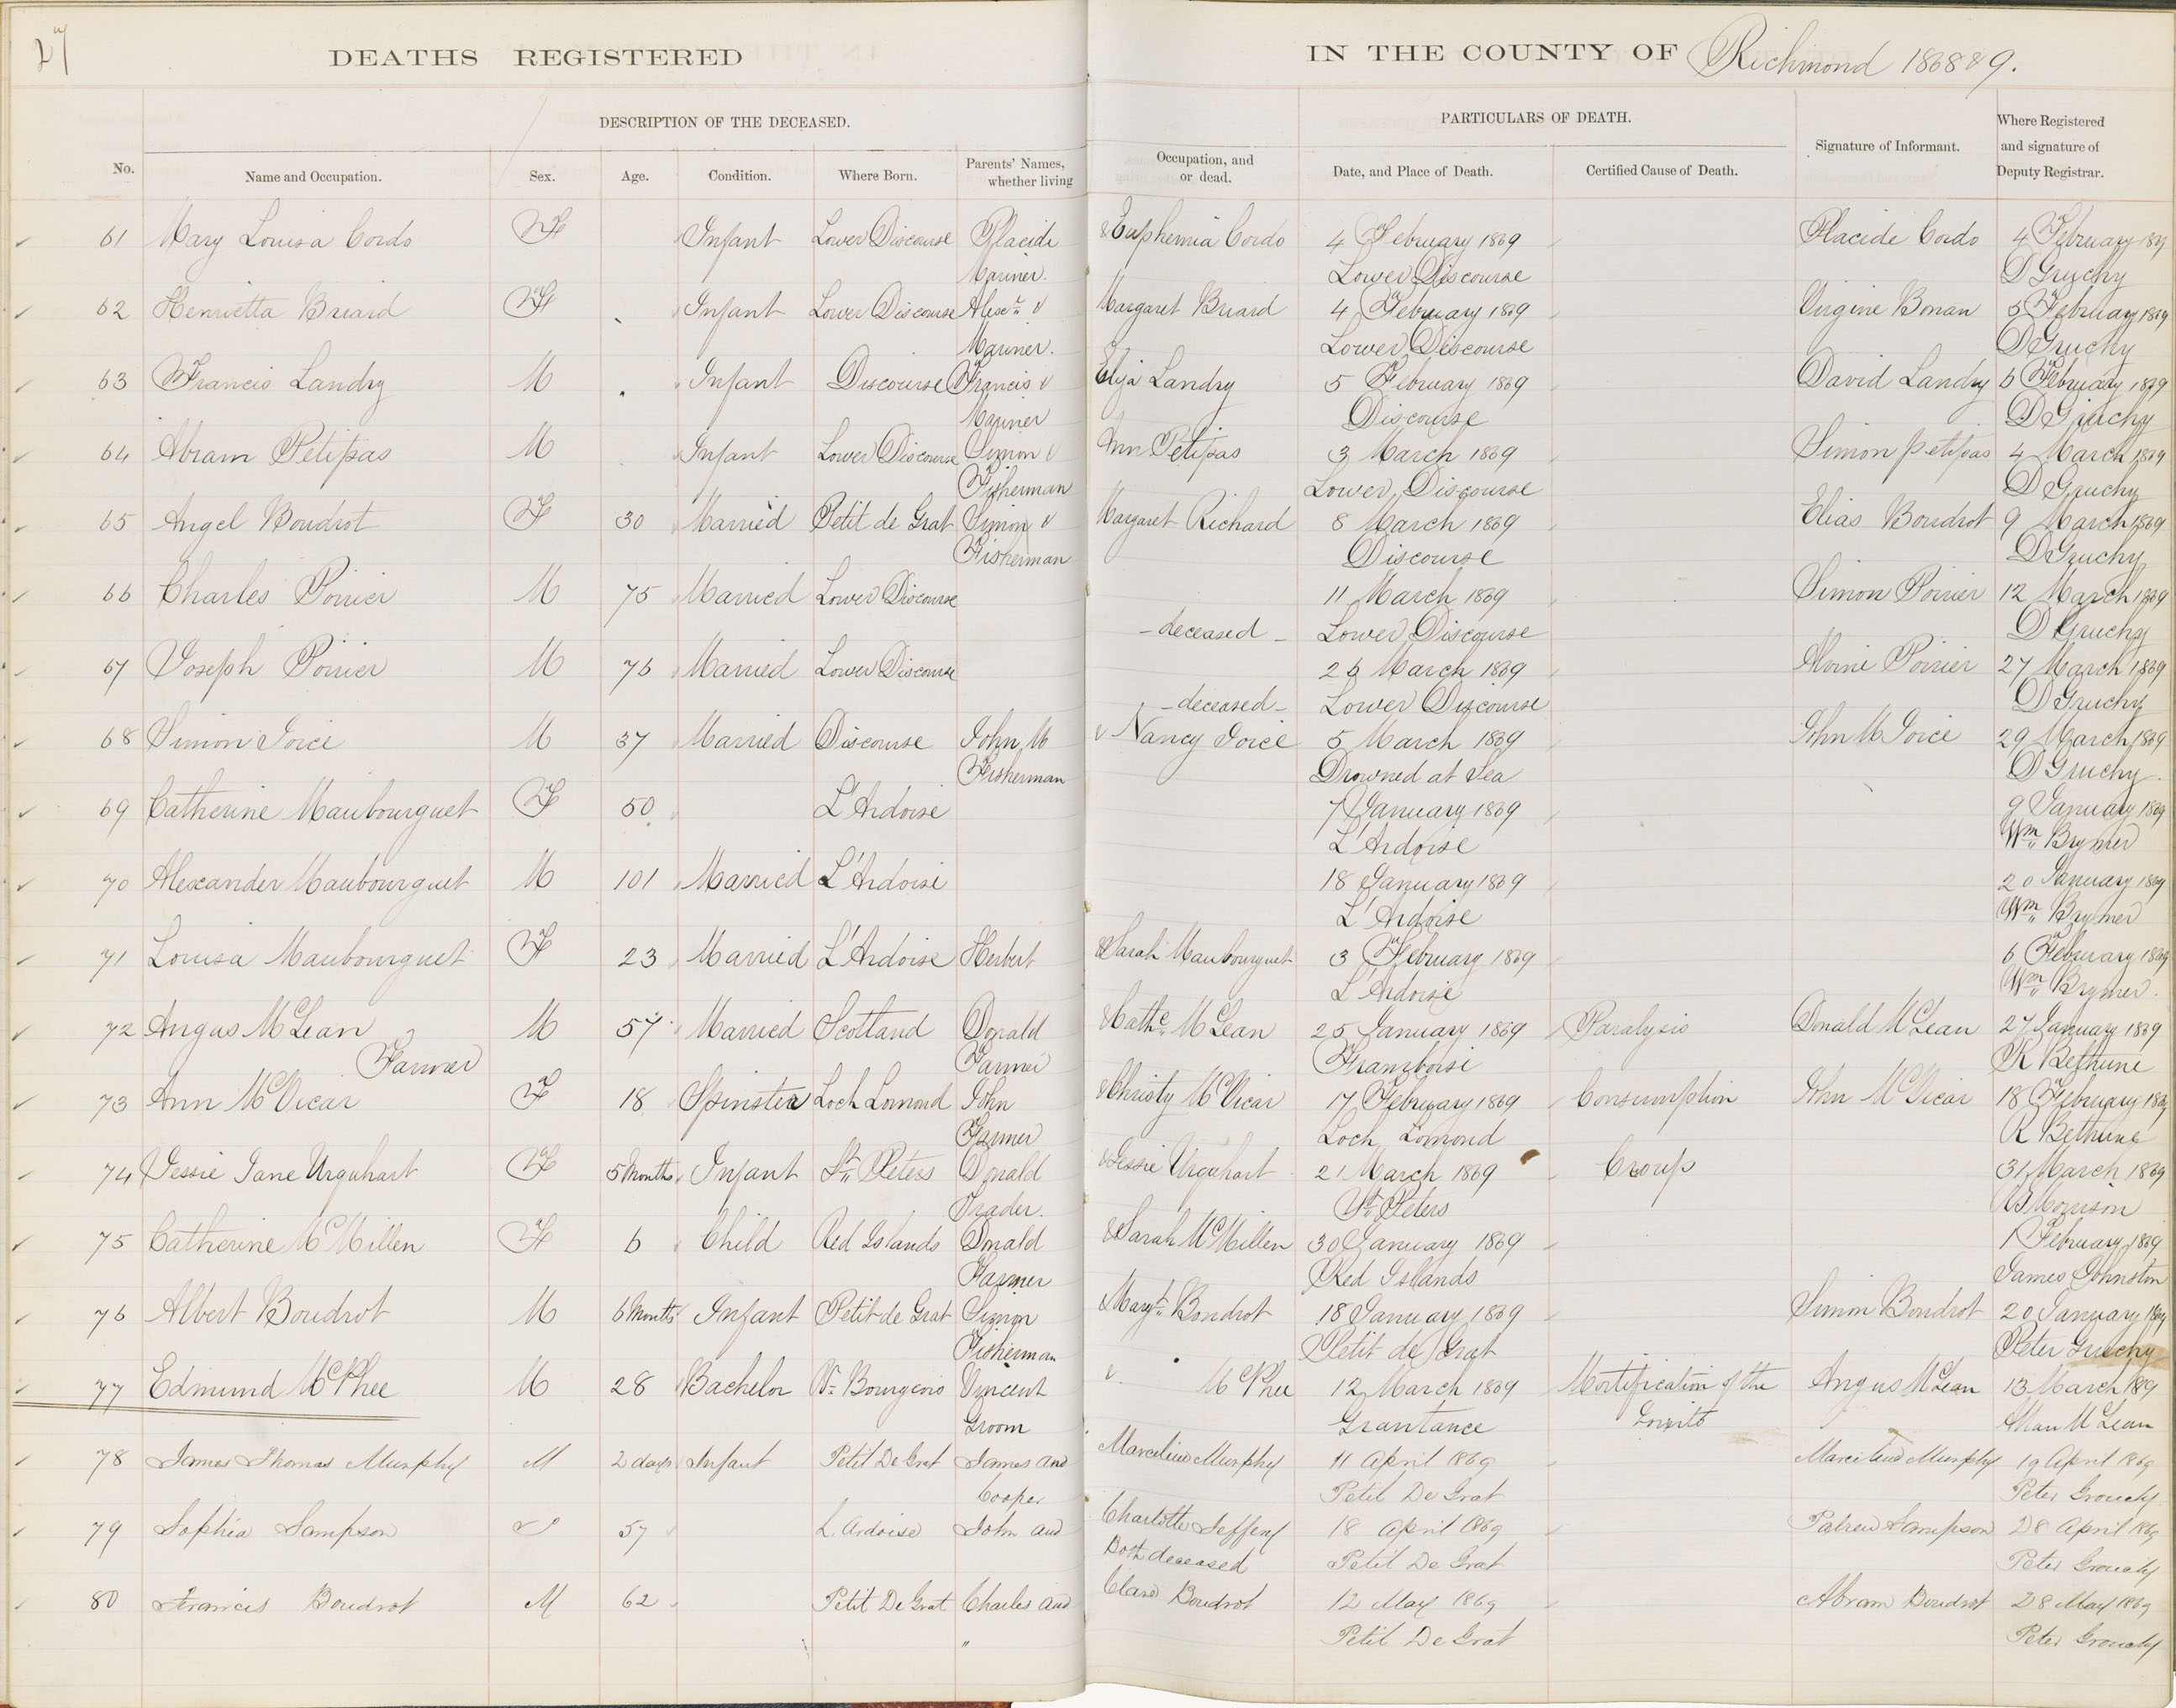 27
DEATHS REGISTERED IN THE COUNTY OF Richmond 1868 & 9.
DESCRIPTION OF THE DECEASED. PARTICULARS OF DEATH.
No. Name and Occupation. Sex. Age. Condition. Where Born. Parents' Names, whether living Occupation, and or dead. Date, and Place of Death. Certified Cause of Death. Signature of Informant. Where Registered and signature of Deputy Registrar.
61 Mary Louisa Cordo F Infant Lower Discourse Placide & Euphemia Cordo 4 February 1869 Placide Cordo 4 February 1869
Mariner. Lower Discourse D Gruchy
62 Henrietta Briard F Infant Lower Discourse Alexr & Margaret Briard 4 February 1869 Virgine Bonan 5 February 1869
Mariner. Lower Discourse D Gruchy
63 Francis Landry M Infant Discourse Francis & Eliza Landry 5 February 1869 David Landry 6 February 1869
Mariner Discourse D Gruchy
64 Abram Petipas M Infant Lower Discourse Simon & Ann Petipas 3 March 1869 Simon petipas 4 March 1869
Fisherman Lower Discourse D Gruchy
65 Angel Boudrot F 30 Married Petit de Grat Simon & Margaret Richard 8 March 1869 Elias Boudrot 9 March 1869
Fisherman Discourse D Gruchy
66 Charles Poirier M 75 Married Lower Discourse 11 March 1869 Simon Poirier 12 March 1869
- deceased - Lower Discourse D Gruchy
67 Joseph Poirier M 76 Married Lower Discourse 26 March 1869 Poirier 27 March 1869
- deceased - Lower Discourse D Gruchy
68 Simon Joice M 37 Married Discourse John M & Nancy Joice 5 March 1869 John M Joice 29 March 1869
Fisherman Drowned at Sea D Gruchy
69 Catherine Maubourguet F 50 L'Ardoise 7 January 1869 9 January 1869
L'Ardoise Wm Brymer
70 Alexander Maubourguet M 101 Married L'Ardoise 18 January 1869 20 January 1869
L'Ardoise Wm Brymer
71 Louisa Maubourguet F 23 Married L'Ardoise Herbert & Sarah Maubourguet 3 February 1869 6 February 1869
L'Ardoise Wm Brymer.
72 Angus McLean M 57 Married Scotland Donald & Cathe McLean 25 January 1869 Paralysis Donald McLean 27 January 1869
Farmer Farmer Framboise R Bethune
73 Ann McVicar F 18 Spinster Loch Lomond John & Christy McVicar 17 February 1869 Consumption John McVicar 18 February 1869
Farmer Loch Lomond R Bethune
74 Jessie Jane Urquhart F 5 Months Infant St Peters Donald & Jessie Urquhart 21 March 1869 Croup 31 March 1869
Trader. St Peters Morrison
75 Catherine McMillen F 6 Child Red Islands Donald & Sarah McMillen 30 January 1869 1 February 1869
Farmer Red Islands James Johnston
76 Albert Boudrot M 6 Months Infant Petit de Grat Simon & Margt Boudrot 18 January 1869 Simon Boudrot 20 January 1869
Fisherman Petit de Grat Peter Gruchy
77 Edmund McPhee M 28 Bachelor Rr Bourgeois Vincent & McPhee 12 March 1869 Mortification of the Angus McLean 13 March 1869
Groom Grantance Allan McLean
78 James Thomas Murphy M 2 days Infant Petit De Grat James and Murphy 11 April 1869 Murphy 19 April 1869
Cooper Petit De Grat Peter Grouchy
79 Sophia Sampson 57 L. Ardoise John and Charlotte 18 April 1869 Sampson 28 April 1869
Both deceased Petit De Grat Peter Grouchy
80 Francis Boudrot M 62 Petit De Grat Charles and Clare Boudrot 12 May 1869 Abram Boudrot 28 May 1869
" Petit De Grat Peter Grouchy